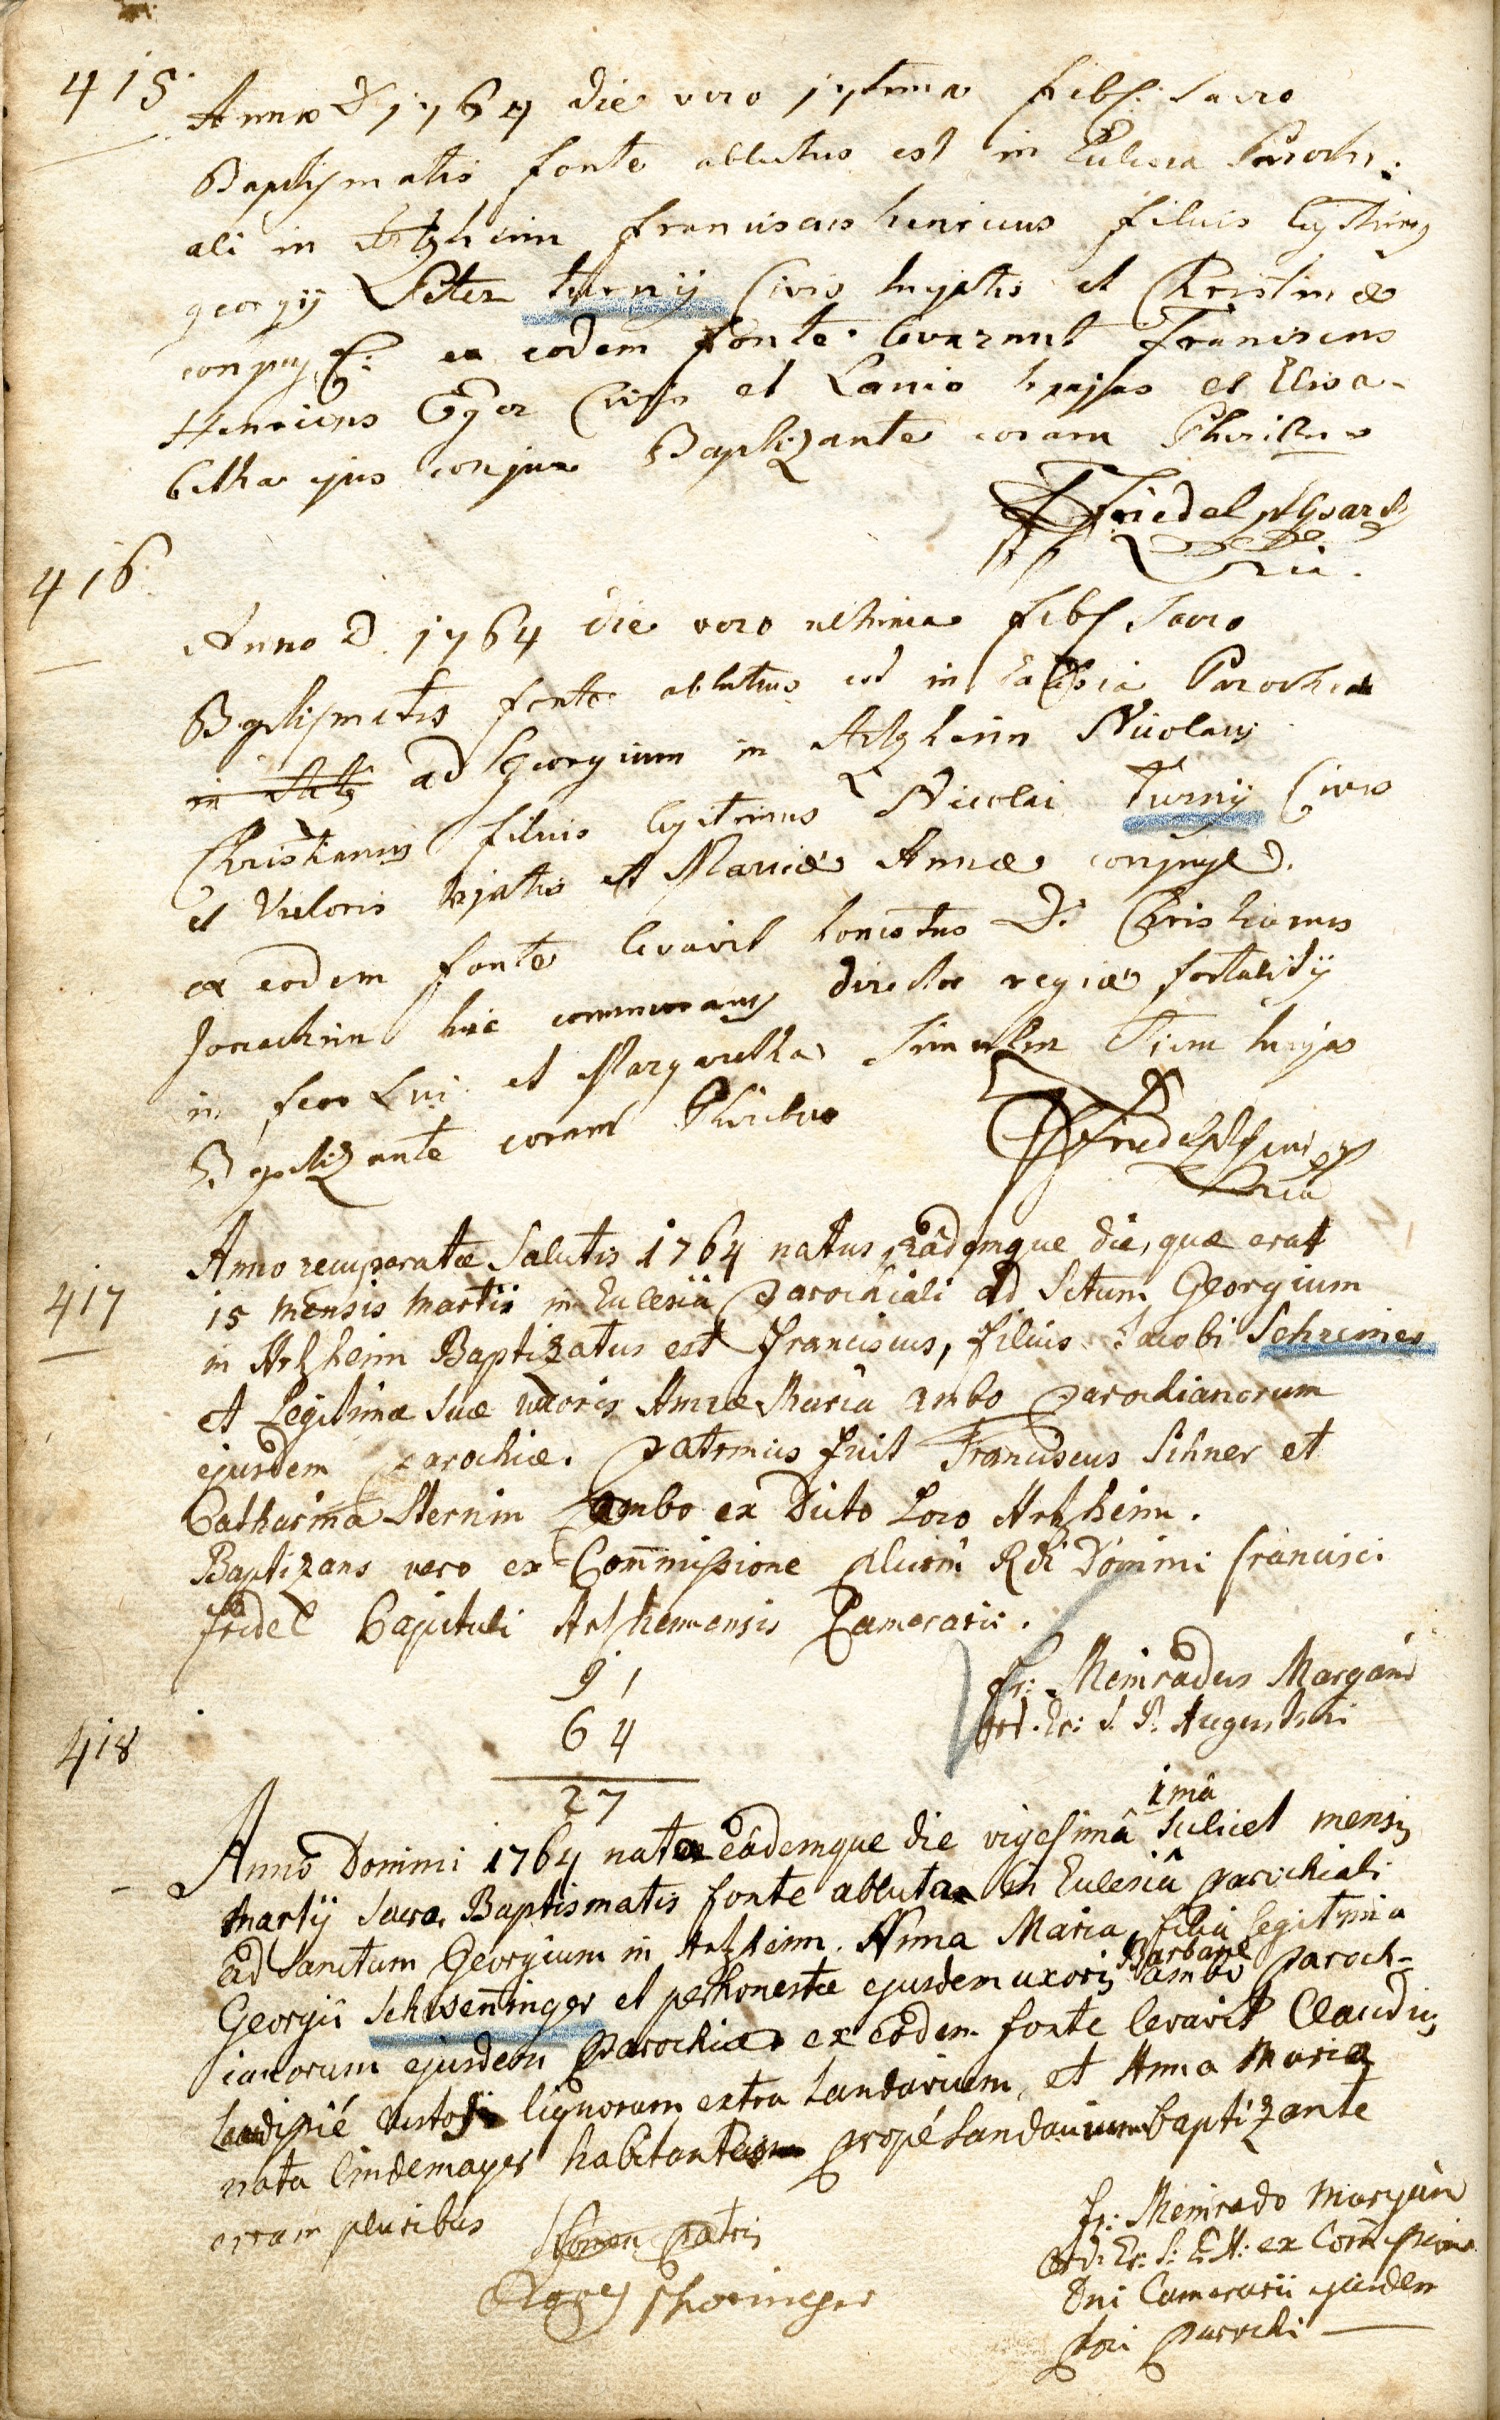 415.
Anno D 1764 die vero 17tima febr: Sacro
Baptismatis fonte ablutus est in Ecclesia Parochi:
ali in Artzheim franciscus henricus filius legitimus
georgij Peter turnij Civis hujatis et Christinæ
conjug: ex eodem fonte levarunt Franciscus
Henricus Eger Civis et Lanio hujas et Elisa-
betha ejus conjux Baptizante coram Pluribus
Friedel
416.
Anno D. 1764 die vero ultima febr Sacro
Baptismatis fonte ablutus est in Ecclesia Parochiali
in Artz ad Georgium in Artzheim Nicolaus
Christianus filius legitimus Nicolai Turnij Civis
et Vietoris hujatis et Mariæ Annæ conjugD.
ex eodem fonte levavit honestus D: Christianus
Joachim hic commorans director regiæ fortalitij
in et Margaretha hujas
Baptizante coram Pluribus
Friedel
417
Anno recuperatæ Salutis 1764 natus, Eâdemque die, quæ erat
15 mensis martii in Ecclesiâ parochiali ad Sctum Georgium
in Artzheim Baptizatus est Franciscus, filius Jacobi Schreiner
et Legitimæ Suæ uxoris Annæ Maria ambo parochianorum
ejusdem parochiæ. patrinus fuit Franciscus Schner et
Catharina Sternin ambo ex Dicto Loco Artzheim.
Baptizans vero ex Commissione plurim Rdi Domini francisci
fridel Capituli Artzhemensis Camerarii.
91
64
27
fr: Meinradus Margain
ord. Er: S. P. Augustini
418
Anno Domini 1764 nata eâdemque die vigesimâ 1mâ Scilicet mensis
Martij Sacro Baptismatis fonte abluta in Ecclesiâ parochiali
ad Sanctum Georgium in Artzheim. Anna Maria, filia legitima
Georgii Schweninger et perhonestæ ejusdem uxoris Barbaræ ambo paroch-
ianorum ejusdem parochiæ ex eodem fonte levavit Claudius
custos lignorum extra Landavium, et Anna Maria
nata lindemayer habitantes propé Landavium baptizante
coram pluribus
fr: Meinrado Margain
Ord: Er: S: P: A: ex Commissione
Dni Camerarii ejusdem
loci parochi
Nomen patris